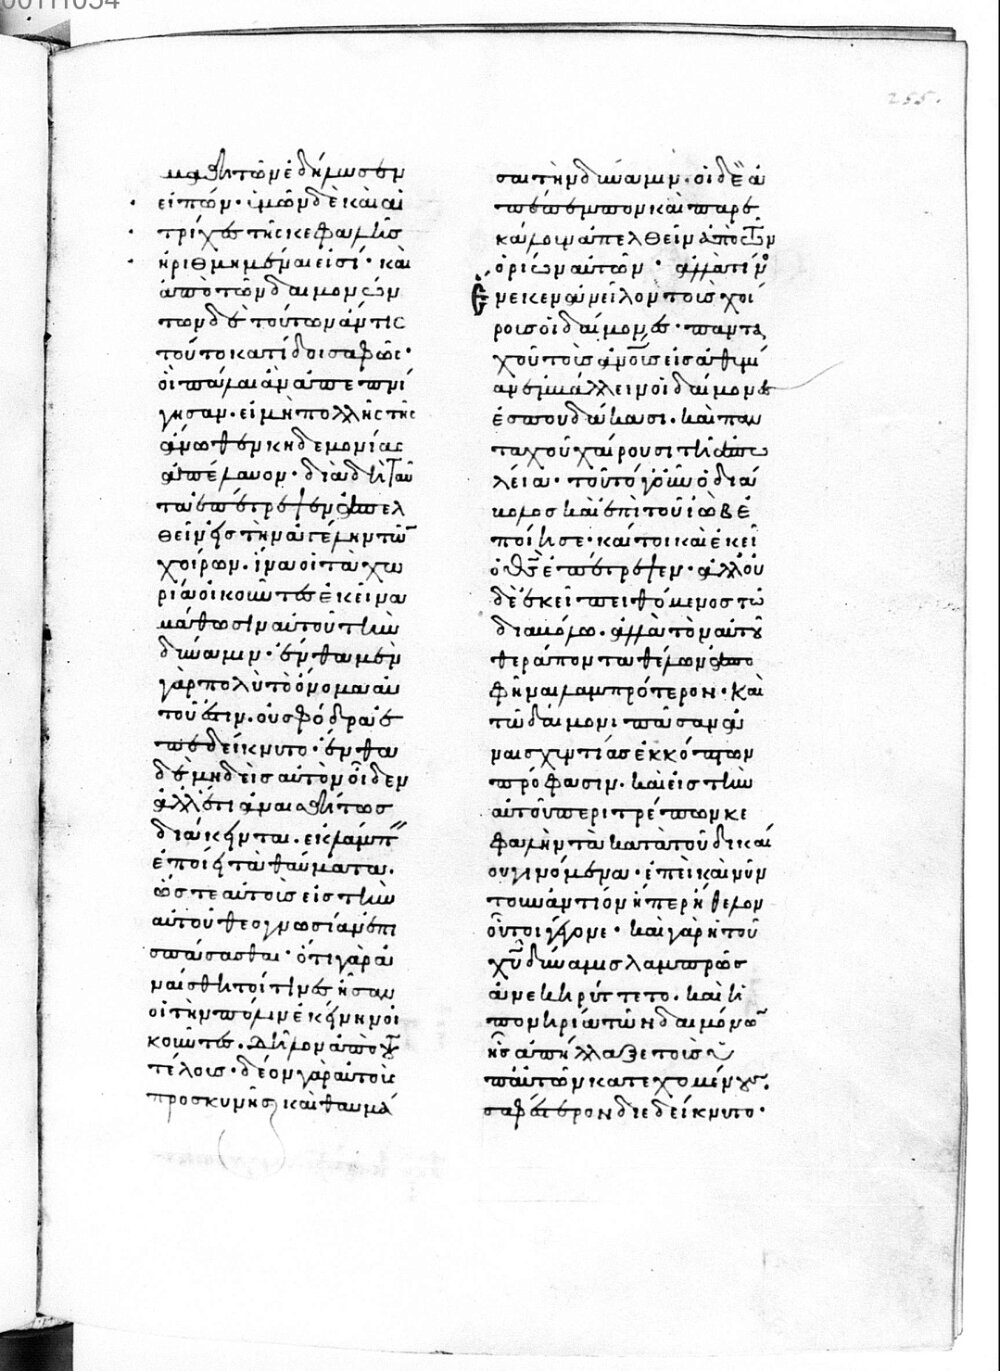 255.
μαθητῶν ἐδήμωσεν
εἰπών· ὑμῶν δὲ καὶ αἱ
τρίχες τῆς κεφαλῆς
ἠριθμημέναι εἰσί· καὶ
ἀπὸ τῶν δαιμόνων
τῶν δὲ τούτων ἄν τις
τοῦτο κατίδοι σαφῶς·
οἳ πάλαι ἂν ἀπέπνι
γησαν· εἰ μὴ πολλῆς τῆς
ἄνωθεν κηδεμονίας
ἀπέλαυον· διὰ δὴ ταῦ
τα ἐπέστρεψεν ἀπελ
θεῖν εἰς τὴν ἀγέλην τῶν
χοίρων· ἵνα οἱ τὰ χω
ρία οἰκοῦντες ἐκεῖνα
μάθωσιν αὐτοῦ τὴν
δύναμιν· ἔνθα μὲν
γὰρ πολὺ τὸ ὄνομα αὐ
τοῦ ἐστιν· οὐ σφόδρα ἐ
πεδείκνυτο· ἔνθα
δὲ μηδεὶς αὐτὸν οἶδεν
ἀλλ' ἔτι ἀναισθήτως
διάκεινται· ἐκλάμπ
ἐποίει τὰ θαύματα·
ὥστε αὐτοὺς εἰς τὴν
αὐτοῦ θεογνωσίαν ἐπι
σπάσασθαι· ὅτι γὰρ ἀ
ναίσθητοί τινες ἦσαν
οἱ τὴν πόλιν ἐκείνην οἰ
κοῦντες· δῆλον ἀπὸ τοῦ
τέλους· δέον γὰρ αὐτοὺς
προσκυνῆσαι καὶ θαυμά
σαι τὴν δύναμιν· οἱ δὲ ἀ
πέπεμπον καὶ παρε
κάλουν ἀπελθεῖν ἀπὸ τῶν
ὁρίων αὐτῶν· ἀλλὰ τίν
Ενεκεν ἀνεῖλον τοὺς χοί
ρους οἱ δαίμονες· παντα
χοῦ τοὺς ἀνοὺς εἰς ἀθυμί
αν ἐμβάλλειν οἱ δαίμονες
ἐσπουδάκασι· καὶ παν
ταχοῦ χαίρουσι τῇ ἀπω
λείᾳ· τοῦτο γοῦν ὁ διά
βολος καὶ ἐπὶ τοῦ ἰὼβ ἐ
ποίησε· καίτοι καὶ ἐκεῖ
ὁ θς ἐπέστρεψεν· ἀλλ' οὐ
δὲ ἐκεῖ πειθόμενος τῷ
διαβόλῳ· ἀλλὰ τὸν αὐτοῦ
θεράποντα θέλων ἀπο
φῆναι λαμπρότερον· καὶ
τῷ δαίμονι πᾶσαν ἀ
ναισχυντίας ἐκκόπτων
πρόφασιν· καὶ εἰς τὴν
αὐτοῦ περιτρέπων κε
φαλὴν τὰ κατὰ τοῦ δικαί
ου γινόμενα· ἐπεὶ καὶ νῦν
τοὐναντίον ἤπερ ἤθελον
οὗτοι γέγονε· καὶ γὰρ ἡ τοῦ
χῦ δύναμις λαμπρῶς
ἀνεκηρύττετο· καὶ ἡ
πονηρία τῶν δαιμόνων
ἧς ἀπήλλαξε τοὺς ὑ
π' αὐτῶν κατεχομένους·
σαφέστερον διεδείκνυτο·